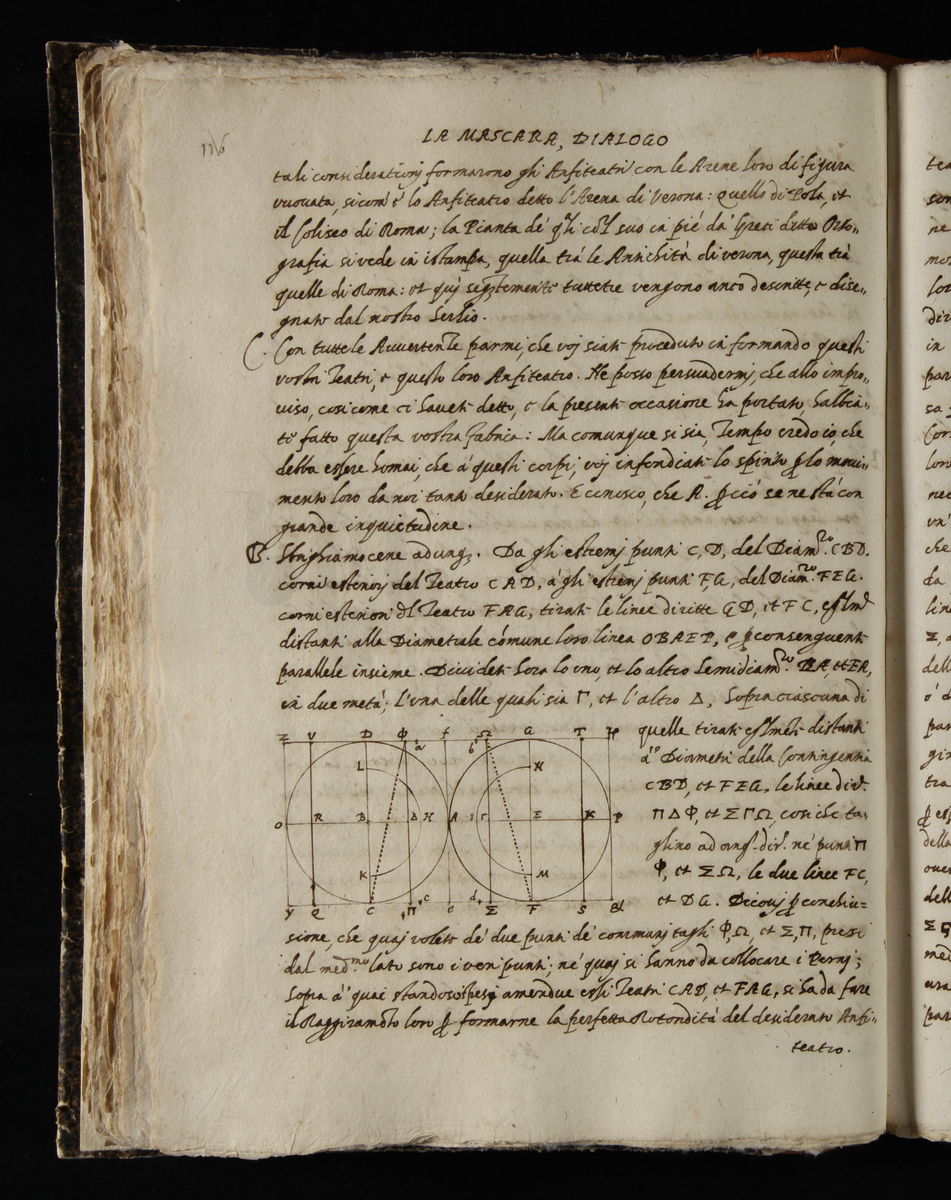 116
LA MASCARA, DIALOGO
tali considerationj formarono gli Anfiteatri con le Arene loro di figura
vuouata, sicom' è lo Anfiteatro detto l'Arena di Verona: Quello di Pola, et
il Coliseo di Roma; la Pianta de' q̃li cõ'l suo in pié da' Greci detto Orto„
grafia si vede in istampa, quella trà le Antichità di verona, questa trà
quelle di Roma: et quj tuttetre vengono anco descritte, e dise„
gnate dal nostro Serlio.
C. Con tutte le Auuertenze parmi, che voj siate proceduto in formando questi
vostri Teatri, e questo loro Anfiteatro. Ne posso persuadermj, che allo impro„
viso, cosi come ci hauete detto, e la presente occasione hà portato, habbia„
te fatto questa vostra fabrica: Ma comunque si sia, Tempo credo io, che
debba essere homai, che à questi corpi, voj infondiate lo spirito p̱ lo moui„
mento loro da noi tanto desiderato. E conosco, che A. p̱ ciò se ne stà con
grande inquietudine.
B. Sbrighiamocene adunq;. Da gli estremj punti C, D, del Diam.ro CBD.
corni esteriorj del Teatro CAD, à gli estremj punti F,G, del Diam.ro FEG.
corni esteriori d'l Teatro FAG, tirate le linee diritte GD, et FC,
distanti alla Diametrale cómune loro linea OBAEP, e p̱ conseguente
parallele insieme. Diuidete hora lo uno, et lo altro Semidiam.ro BA, et EA,
in due metà; L'una delle quali sia Γ, et l'altro Δ, Sopra ciascuna di
quelle tirate distanti
a' Diametri della Contingentia
CBD, et FEG, le linee dir.
ΠΔΦ, et ΣΓΩ, cosi che ta„
glino ad ang. dir. ne' punti Π
Φ, et ΣΩ, le due linee FC,
et DG. Dicouj p̱ conchiu=
Z V D Φ a f b Ω G T
L N
O R B Δ H A I Γ E K P
K M
Y Q C Π c e d Σ F S &
sione, che quaj volete de' due punti de' communj tagli Φ,Ω, et Σ,Π, presi
dal med.mo lato sono i veri punti; ne' quaj si hanno da collocare i Pernj;
Sopra a' quai standosi amendue essi Teatri CAD, et FAG, si ha da fare
il Raggiramẽto loro p̱ formarne la perfetta Rotondità del desiderato Anfi„
teatro.